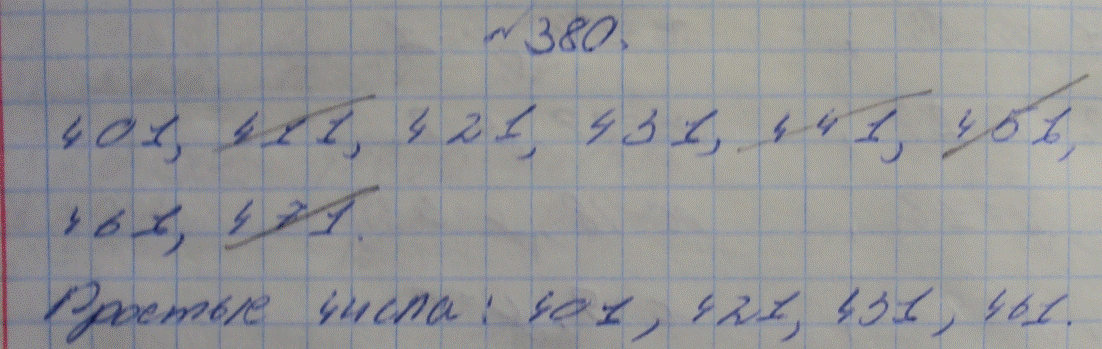 №380.
401, 411, 421, 431, 441, 451,
461, 471.
Простые числа: 401, 421, 431, 461.